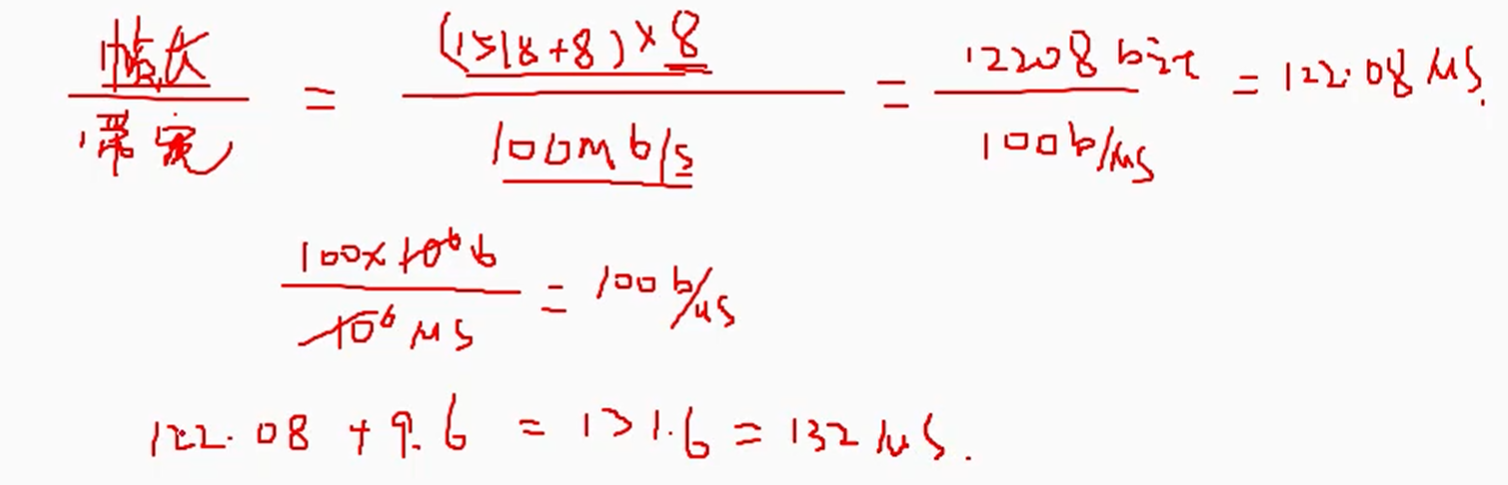 帧长/带宽 = (1518+8)×8/100Mb/s = 12208bit/100b/μs = 122.08μs.
100×10⁶b/10⁶μs = 100b/μs
122.08+9.6=131.6=132μs.